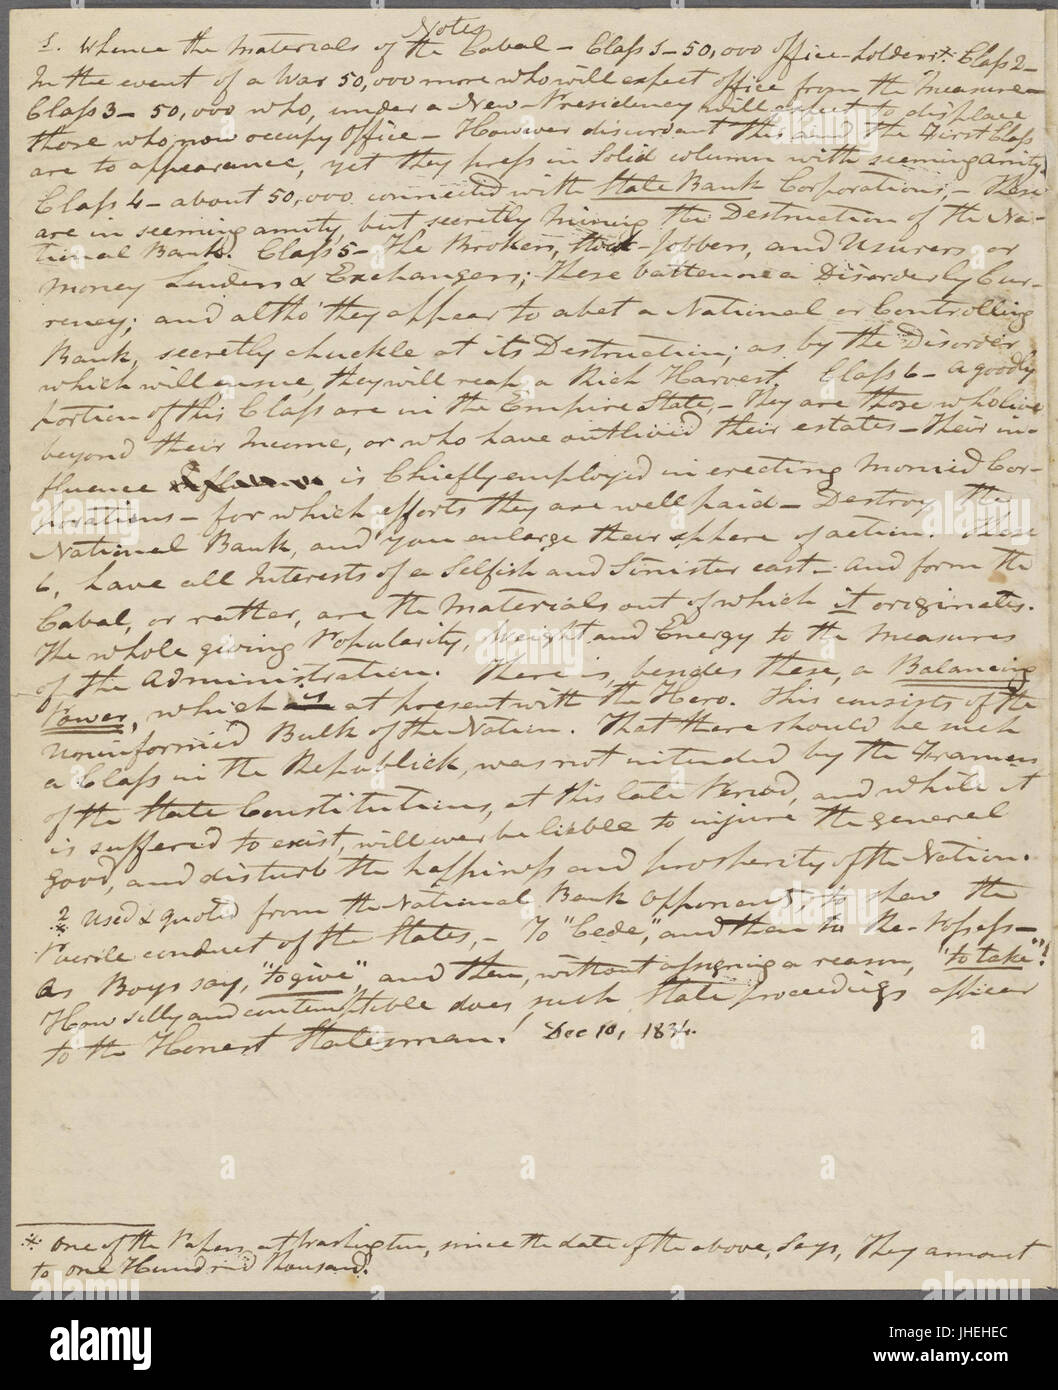 Notes
1. Whence the materials of the Cabal – Class 1 – 50,000 office-holders*: Class 2 –
In the event of a War 50,000 more who will expect office from the Measure –
Class 3 – 50,000 who, under a New-Presidency will expect to displace
those who now occupy Office – However discordant this and the First Class
are to appearance, yet they press in Solid column with seeming amity.
Class 4 – about 50,000 connected with State Bank Corporations; – These
are in seeming amity, but secretly mining the Destruction of the Na-
tional Bank. Class 5 – The Brokers, -Jobbers, and Usurers or
money Lenders & Exchangers; These batten on a Disorderly Cur-
rency; and altho' they appear to abet a National or Controlling
Bank, secretly chuckle at its Destruction; as by the Disorder
which will ensue, they will reap a Rich Harvest. Class 6 – A goodly
portion of this Class are in the Empire State, – They are those who live
beyond their Income, or who have outlived their estates – Their in-
fluence is Chiefly employed in erecting monied Cor-
porations – for which efforts they are well paid – Destroy the
National Bank, and you enlarge their sphere of action. These
6, have all Interests of a Selfish and Sinister cast – And form the
Cabal, or rather, are the Materials out of which it originates.
The whole giving Popularity, Weight and Energy to the measures
of the Administration. There is, besides these, a Balancing
Power, which is at present with the Hero. This consists of the
uninformed Bulk of the Nation. That there should be such
a Class in the Republick, was not intended by the Framers
of the State Constitutions, at this late Period, and while it
is suffered to exist, will ever be liable to injure the general
good, and disturb the happiness and prosperity of the Nation.
2 Used & quoted from the National Bank Opponents to shew the
Puerile conduct of the States, – To "Cede", and then to Re-Possess –
As Boys say, "to give", and then, without assigning a reason, "to take"!
How silly and contemptible does such State proceedings appear
to the Honest Statesman! Dec 10, 1834.
* One of the Papers at Washington, since the date of the above, says, They amount
to one Hundred Thousand.
alamy
Image ID: JHEHEC
www.alamy.com